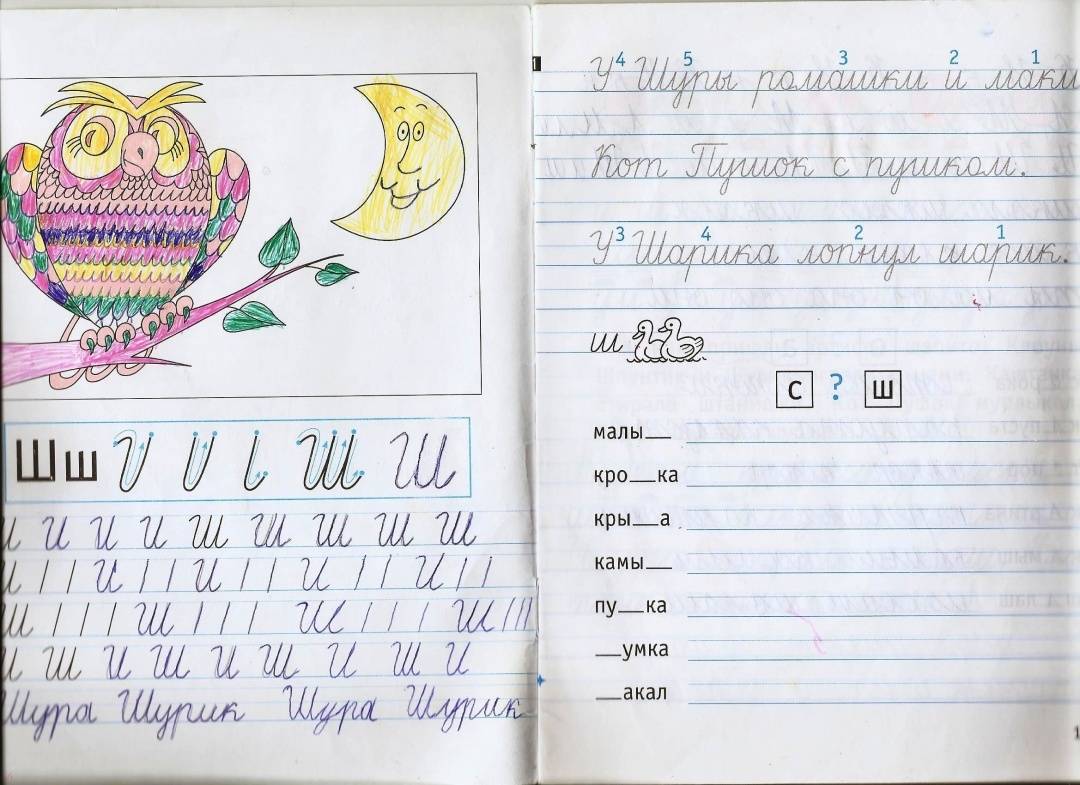 Шш И И И Ш Ш
И И И И Ш Ш Ш Ш Ш
И И И И
Ш Ш Ш Ш
И Ш И Ш И Ш И Ш И
Шура Шурик Шура Шурик
4 5 3 2 1
У Шуры ромашки и маки
Кот Пушок с пушком.
3 4 2 1
У Шарика лопнул шарик.
ш
С ? Ш
малы__
кро__ка
кры__а
камы__
пу__ка
__умка
__акал